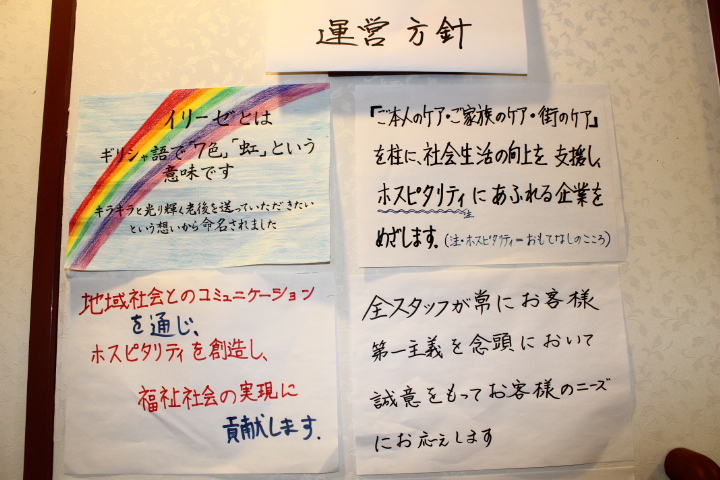 運営方針
イリーゼとは
ギリシャ語で「7色」「虹」という
意味です
キラキラと光り輝く老後を送っていただきたい
という想いから命名されました
『ご本人のケア・ご家族のケア・街のケア』
を柱に、社会生活の向上を支援し、
ホスピタリティにあふれる企業を
注
めざします。(注・ホスピタリティ=おもてなしのこころ)
地域社会とのコミュニケーション
を通じ、
ホスピタリティを創造し、
福祉社会の実現に
貢献します。
全スタッフが常にお客様
第一主義を念頭において
誠意をもってお客様のニーズ
にお応えします